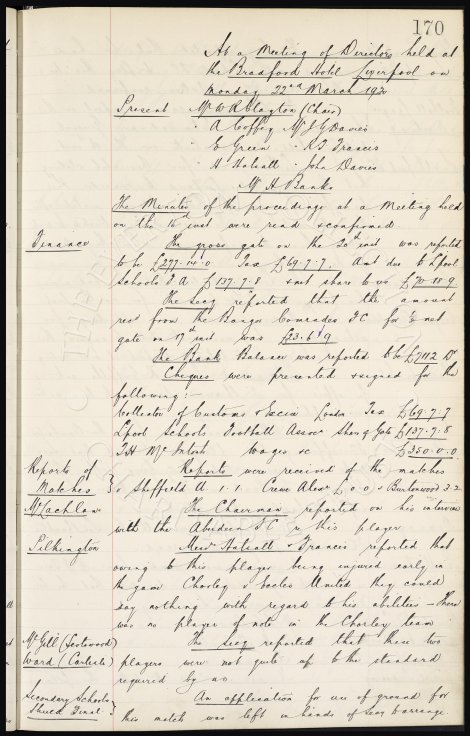 170
At a Meeting of Directors held at
the Bradford Hotel Liverpool on
Monday 22nd March 1920
Present Mr W R Clayton (Chair)
" A Coffey Mr J G Davies
" E Green " R T Francis
" H Halsall " John Davies
Mr H Banks
The Minutes of the proceedings at a Meeting held
on the inst were read & confirmed
Finance The gross gate on the 20th inst was reported
to be £277.14.0 Tax £69.7.7. Amt due to Lpool
Schools F A £137.7.8 & nett share to us £70.18.9
The Secy reported that the amount
recd from the Bangor Comrades F C for ½ net
gate on 17th inst was £23.6.9
The Bank Balance was reported to be £7112 Dr
Cheques were presented & signed for the
following :-
Collector of Customs & Excise London Tax £69.7.7
Lpool Schools Football Assoc Share of Gate £137.7.8
T H McIntosh Wages &c £350.0.0
Reports of
Matches Reports were received of the matches
v Sheffield U 1.1. Crewe Alex L 0.0 v Burtonwood 3.2
McLachlan The Chairman reported on his interview
with the Aberdeen F C re this player
Pilkington Messrs Halsall & Francis reported that
owing to this player being injured early in
the game Chorley v Eccles United they could
say nothing with regard to his abilities - There
was no player of note in the Chorley team
Mc Gill (Fleetwood)
Ward (Carlisle) The Secy reported that these two
players were not quite up to the standard
required by us
Secondary Schools
Shield Final. An application for use of ground for
this match was left in hands of Secy to arrange.